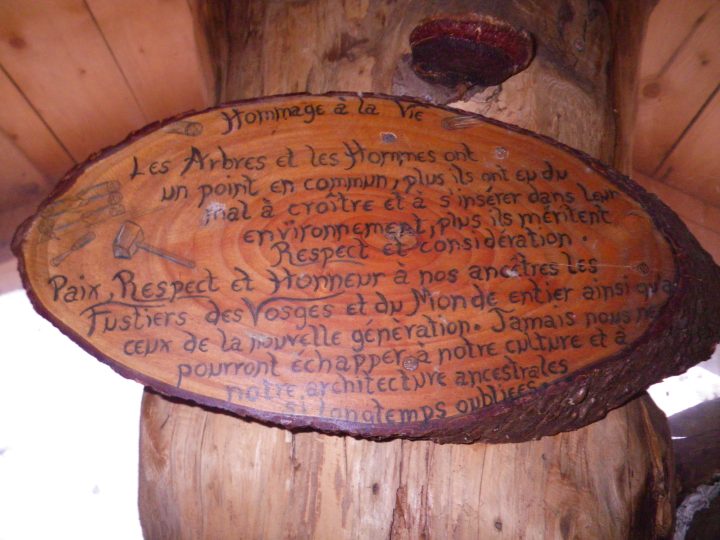 Hommage à la Vie
Les Arbres et les Hommes ont
un point en commun, plus ils ont eu du
mal à croître et à s'insérer dans leur
environnement, plus ils méritent
Respect et considération.
Paix, Respect et Honneur à nos ancêtres les
Fustiers des Vosges et du Monde entier ainsi qu'à
ceux de la nouvelle génération. Jamais nous ne
pourront échapper à notre culture et à
notre architecture ancestrales
si longtemps oubliées...